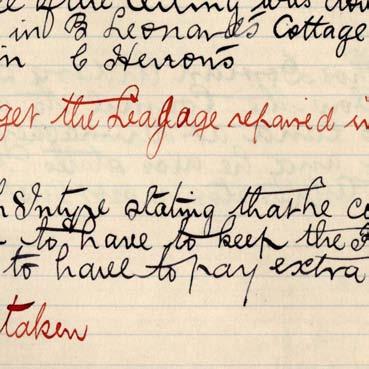 ceiling was
in B Leonard's Cottage
in C Herron's
get the Leagage repaired in
stating that he co
to have to keep the
to have to pay extra
taken